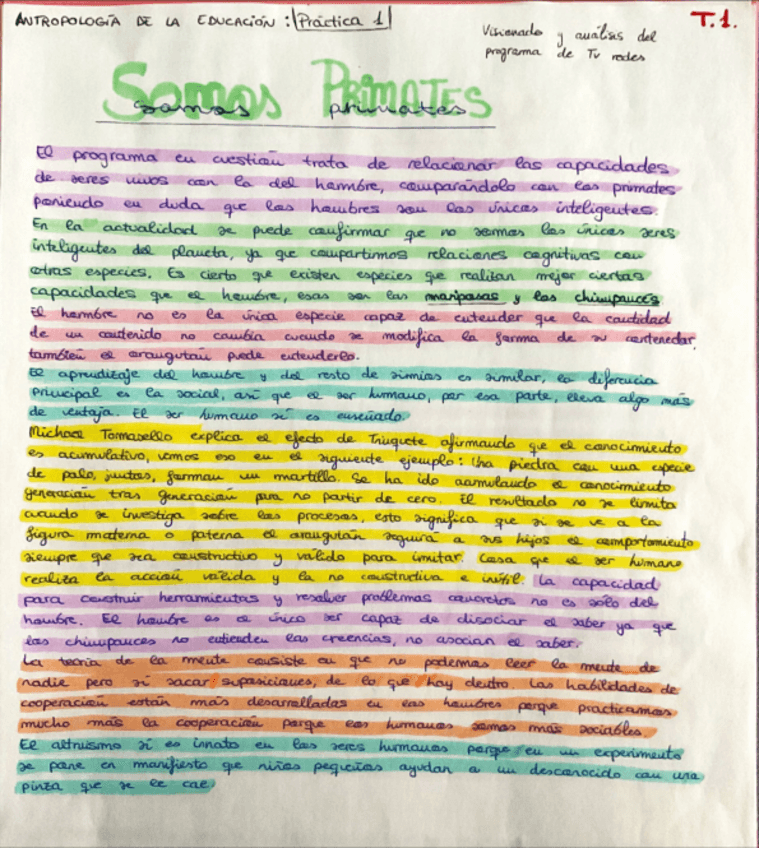 ANTROPOLOGÍA DE LA EDUCACIÓN: Práctica 1
T.1.
Visionado y análisis del
programa de Tv redes
SOMOS PRIMATES
somos primates
El programa en cuestión trata de relacionar las capacidades
de seres vivos con la del hombre, comparándolo con los primates
poniendo en duda que los hombres son los únicos inteligentes.
En la actualidad se puede confirmar que no somos los únicos seres
inteligentes del planeta, ya que compartimos relaciones cognitivas con
otras especies. Es cierto que existen especies que realizan mejor ciertas
capacidades que el hombre, esas son las mariposas y los chimpancés.
El hombre no es la única especie capaz de entender que la cantidad
de un contenido no cambia cuando se modifica la forma de su contenedor,
también el orangután puede entenderlo.
El aprendizaje del hombre y del resto de simios es similar, la diferencia
principal es la social, así que el ser humano, por esa parte, lleva algo más
de ventaja. El ser humano sí es enseñado.
Michael Tomasello explica el efecto de Triquete afirmando que el conocimiento
es acumulativo, vemos eso en el siguiente ejemplo: Una piedra con una especie
de palo, juntos, forman un martillo. Se ha ido acumulando el conocimiento
generación tras generación para no partir de cero. El resultado no se limita
cuando se investiga sobre los procesos, esto significa que si se ve a la
figura materna o paterna el orangután seguirá a sus hijos el comportamiento
siempre que sea constructivo y válido para imitar. Cosa que el ser humano
realiza la acción válida y la no constructiva e inútil. La capacidad
para construir herramientas y resolver problemas concretos no es sólo del
hombre. El hombre es el único ser capaz de disociar el saber ya que
los chimpancés no entienden las creencias, no asocian el saber.
La teoría de la mente consiste en que no podemos leer la mente de
nadie pero sí sacar suposiciones, de lo que hay dentro. Las habilidades de
cooperación están más desarrolladas en los hombres porque practicamos
mucho más la cooperación porque los humanos somos más sociables.
El altruismo sí es innato en los seres humanos porque en un experimento
se pone en manifiesto que niños pequeños ayudan a un desconocido con una
pinza que se le cae.